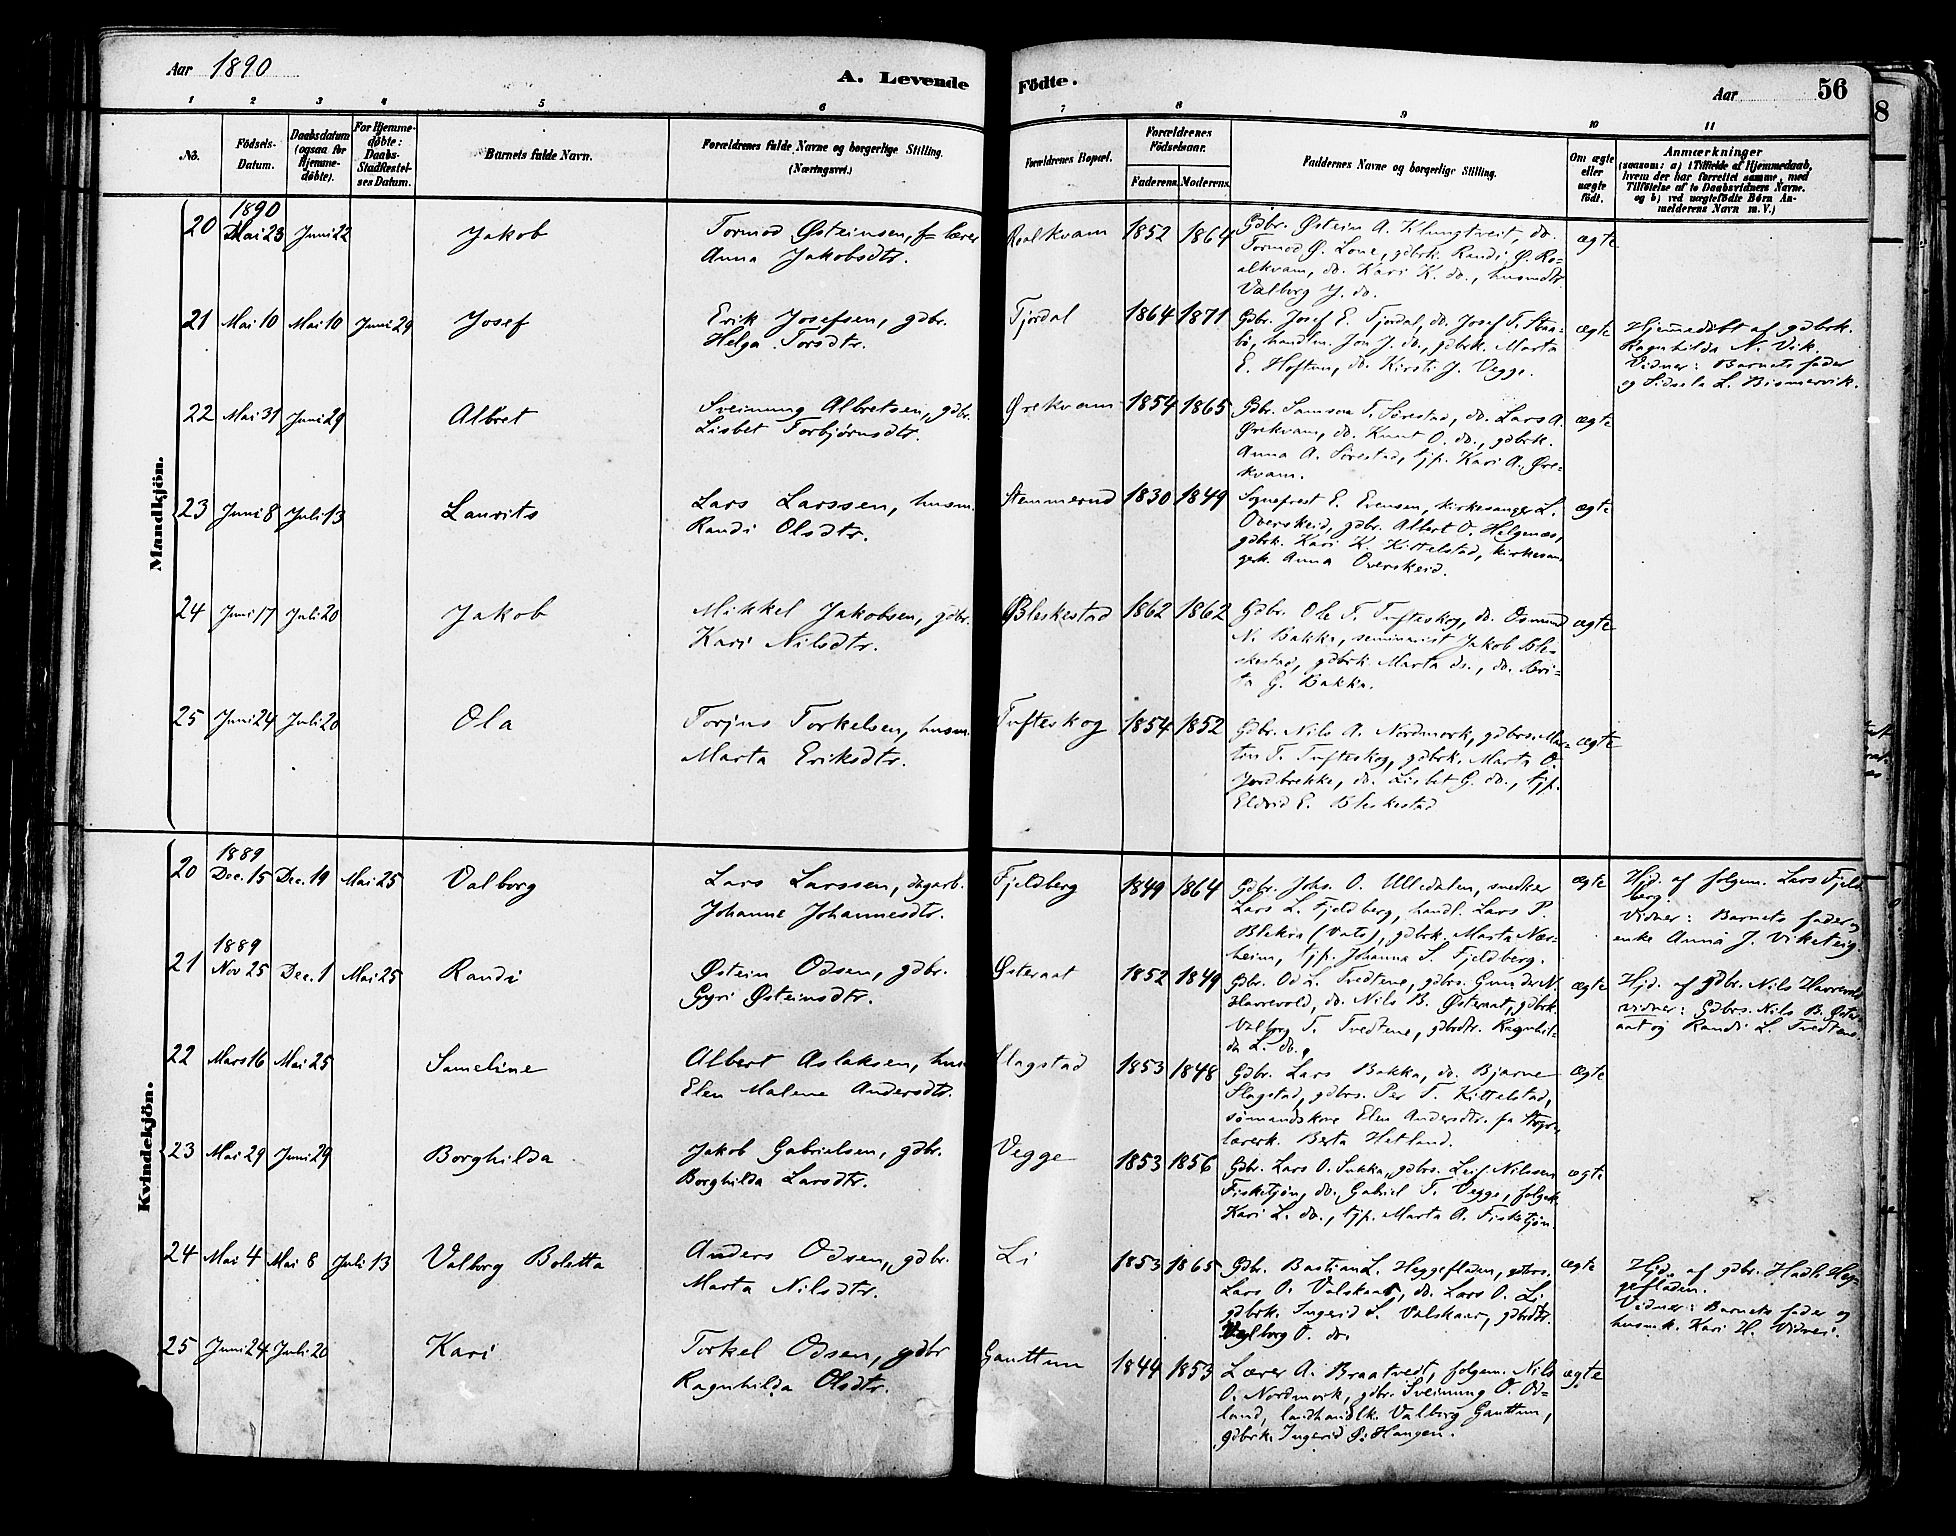 Aar 1890
A. Levende
Födte.
Aar
56
8
1 2 3 4 5 6 7 8 9 10 11
No.
Födsels-
Datum.
Daabsdatum
(ogsaa for
Hjemme-
döbte).
For Hjemme-
döbte:
Daabs-
Stadfæstel-
ses Datum.
Barnets fulde Navn.
Forældrenes fulde Navne og borgerlige Stilling.
(Næringsvei.)
Forældrenes Bopæl.
Forældrenes
Födselsaar.
Faderens. Moderens.
Faddernes Navne og borgerlige Stilling.
Om ægte
eller
uægte
födt.
Anmærkninger
(saasom: a) i Tilfælde af Hjemmedaab,
hvem der har forrettet samme, med
Tilföielse af to Daabsvidners Navne.
og b) ved uægtefödte Börn An-
melderens Navn m. V.)
Mandkjön.
1890
20 Mai 23 Juni 22 Jakob
Tormod Østeinsen, f= lærer
Anna Jakobsdtr.
Roalkvam 1852 1864
Gdbr. Østein A. Klungtveit, do.
Tormod Ø. Lone, gdbrk. Randi Ø. Ro-
alkvam, do. Kari K. do., husmdtr
Valborg J. do.
ægte
21 Mai 10 Mai 10 Juni 29 Josef
Erik Josefsen, gdbr.
Helga Torsdtr.
Fjordal 1864 1871
Gdbr. Josef E. Fjordal, do. Josef T. Staa-
bö, handlm. Jon J. do., gdbrk. Marta
E. Hoftun, do. Kirsti J. Vegge.
ægte
Hjemmedöbt af gdbrk.
Ragnhilda N. Vik.
Vidner: Barnets fader
og Sidsela L. Bismervik.
22 Mai 31 Juni 29 Albret
Sveinung Albretsen, gdbr.
Lisbet Torbjørnsdtr.
Ørekvam 1854 1865
Gdbr. Samson T. Sørestad, do. Lars A.
Ørekvam, do. Knut O. do., gdbrk.
Anna A. Sørestad, tjp. Kari A. Øre-
kvam.
ægte
23 Juni 8 Juli 13 Laurits
Lars Larssen, husm.
Randi Olsdtr.
Stemmerud 1830 1849
Sogneprest E. Evensen, kirkesanger L.
Overskeid, gdbr. Albert O. Helgenæs,
gdbrk. Kari K. Kittelstad, kirkesan-
gerk. Anna Overskeid.
ægte
24 Juni 17 Juli 20 Jakob
Mikkel Jakobsen, gdbr.
Kari Nilsdtr.
Bleskestad 1862 1862
Gdbr. Ole T. Tufteskog, do. Osmund
N. Bakka, seminarist Jakob Ble-
skestad, gdbrk. Marta do., do. Bri-
ta G. Bakka.
ægte
25 Juni 24 Juli 20 Ola
Torjus Torkelsen, husm.
Marta Eriksdtr.
Tufteskog 1854 1852
Gdbr. Nils A. Nordmork, gdbrs. Mar-
tin T. Tufteskog, gdbrk. Marta O.
Jordbrekke, do. Lisbet G. do., tjp.
Eldrid E. Bleskestad
ægte
Kvindekjön.
1889
20 Dec. 15 Dec. 19 Mai 25 Valborg
Lars Larssen, dagarb.
Johanne Johannesdtr.
Fjeldberg 1849 1864
Gdbr. Johs. O. Ulledalen, snedker
Lars L. Fjeldberg, handl. Lars P.
Blekra (Vats), gdbrk. Marta Nær-
heim, tjp. Johanna S. Fjeldberg.
ægte
Hjd. af folgem. Lars Fjeld-
berg.
Vidner: Barnets fader og
enke Anna J. Viketeig.
1889
21 Nov 25 Dec. 1 Mai 25 Randi
Østein Odsen, gdbr.
Gyri Østeinsdtr.
Østeraat 1852 1849
Gdbr. Od L. Tvedtene, gdbrs. Gunder N.
Harrevold, do. Nils B. Østeraat, gdbrk.
Valborg T. Tvedtene, gdbrdtr. Ragnhil-
da L. do.
ægte
Hjd. af gdbr. Nils Harrevold
vidner: Gdbrs. Nils B. Øster-
aat og Randi L. Tvedtene.
22 Mars 16 Mai 25 Sameline
Albert Aslaksen, hus
Elen Malene Andersdtr.
Slagstad 1853 1848
Gdbr. Lars Bakka, do. Bjarne
Slagstad, gdbrs. Per T. Kittelstad,
sømandskone Elen Andersdtr. fa
lærerk. Berta Hetland.
ægte
23 Mai 29 Juni 29 Borghilda
Jakob Gabrielsen, gdbr.
Borghilda Larsdtr.
Vegge 1853 1856
Gdbr. Lars O. Sukka, gdbrs. Leif Nilssen
Fisketjøn, do. Gabriel T. Vegge, folgek.
Kari L. do., tjp. Marta A. Fisketjøn.
ægte
24 Mai 4 Mai 8 Juli 13 Valborg Boletta
Anders Odsen, gdbr.
Marta Nilsdtr.
Li 1853 1865
Gdbr. Bastian L. Heggefladen, gdbrs.
Lars O. Valskaar, do. Lars O. Li,
gdbrk. Ingerid L. Valskaar, gdbrdtr.
Valborg O. do.
ægte
Hjd. af gdbr. Hadle Heg-
gefladen.
Vidner: Barnets fader og
husmk. Kari H. Vidnes.
25 Juni 24 Juli 20 Kari
Torkel Odsen, gdbr
Ragnhilda Olsdtr.
Gauttun 1844 1853
Lærer A. Braatvedt, folgem. Nils
O. Nordmork, gdbr. Sveinung O. Od-
land, landhandlk. Valborg Gauttun,
gdbrk. Ingerid Ø. Haugen.
ægte